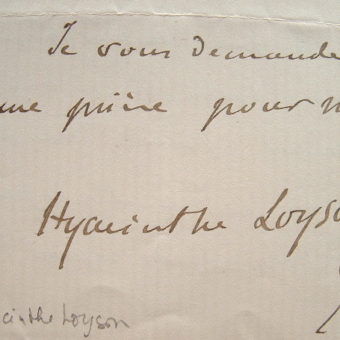 Je vous demande
une prière pour
Hyacinthe Loyso
cinthe Loyson